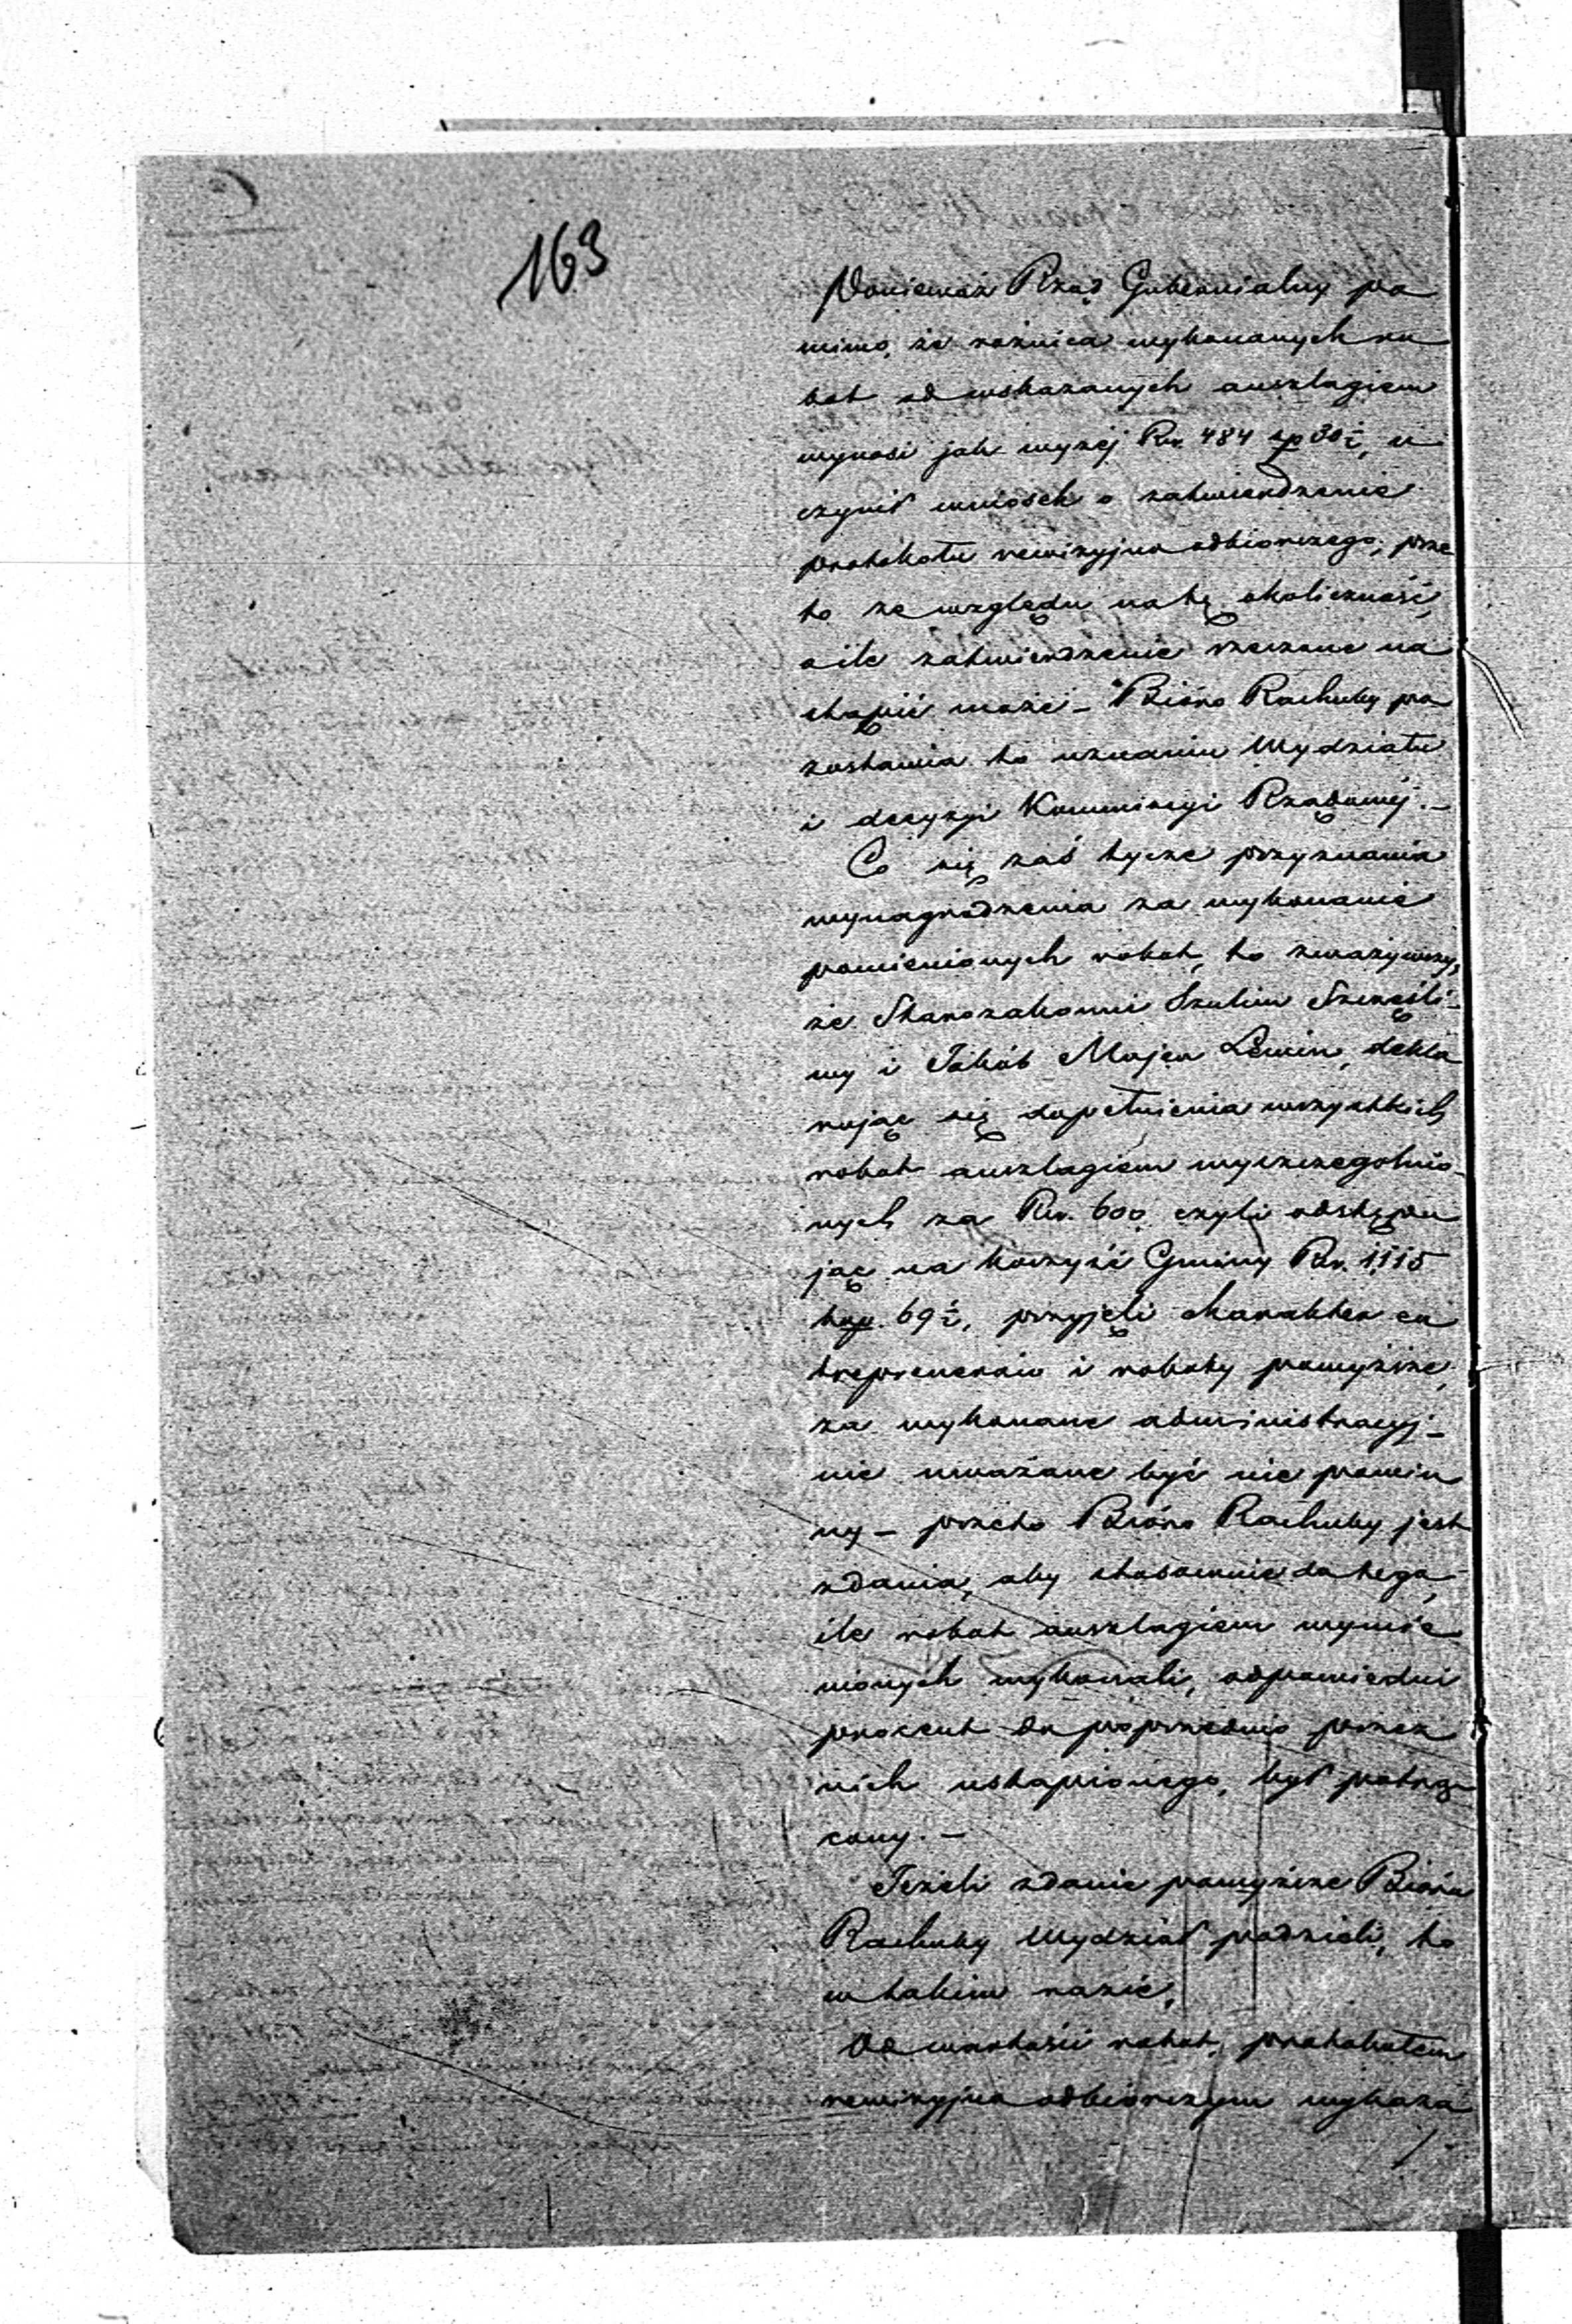 163
Ponieważ Rząd Gubernialny po
mimo, że różnica wykonanych ro
bot od wskazanych anszlagiem
wynosi jak wyżej Rsr. 484 kp 30½, u
czynił wniosek o zatwierdzenie
protokołu rewizyjno odbiorczego, prze
to ze względu na tę okoliczność,
o ile zatwierdzenie rzeczone na
stąpić może – Bióro Rachuby po
zostawia to uznaniu Wydziału
i decyzyi Kommissyi Rządowéj. –
Co się zaś tycze przyznania
wynagrodzenia za wykonanie
pomienionych robot, to zważywszy,
że Starozakonni Szulim Szczęśli-
wy i Jakób Majer Lewin, dekla
rując się dopełnienia wszystkich
robot anszlagiem wyszczególnio-
nych za Rsr. 600 czyli odstępu
jąc na korzyść Gminy Rsr. 1,115
kop. 69½, przyjęli charakter en
treprenerów i roboty powyższe,
za wykonane administracyj-
nie uważane być nie powin
ny – przeto Bióro Rachuby jest
zdania, aby stosownie do tego,
ile robot anszlagiem wymie
nionych wykonali, odpowiedni
procent do poprzednio przez
nich ustąpionego, był potrą
cony. –
Jeżeli zdanie powyższe Bióra
Rachuby Wydział podzieli, to
w takim razie,
Od wartości robot, protokołem
rewizyjno odbiorczym wykaza